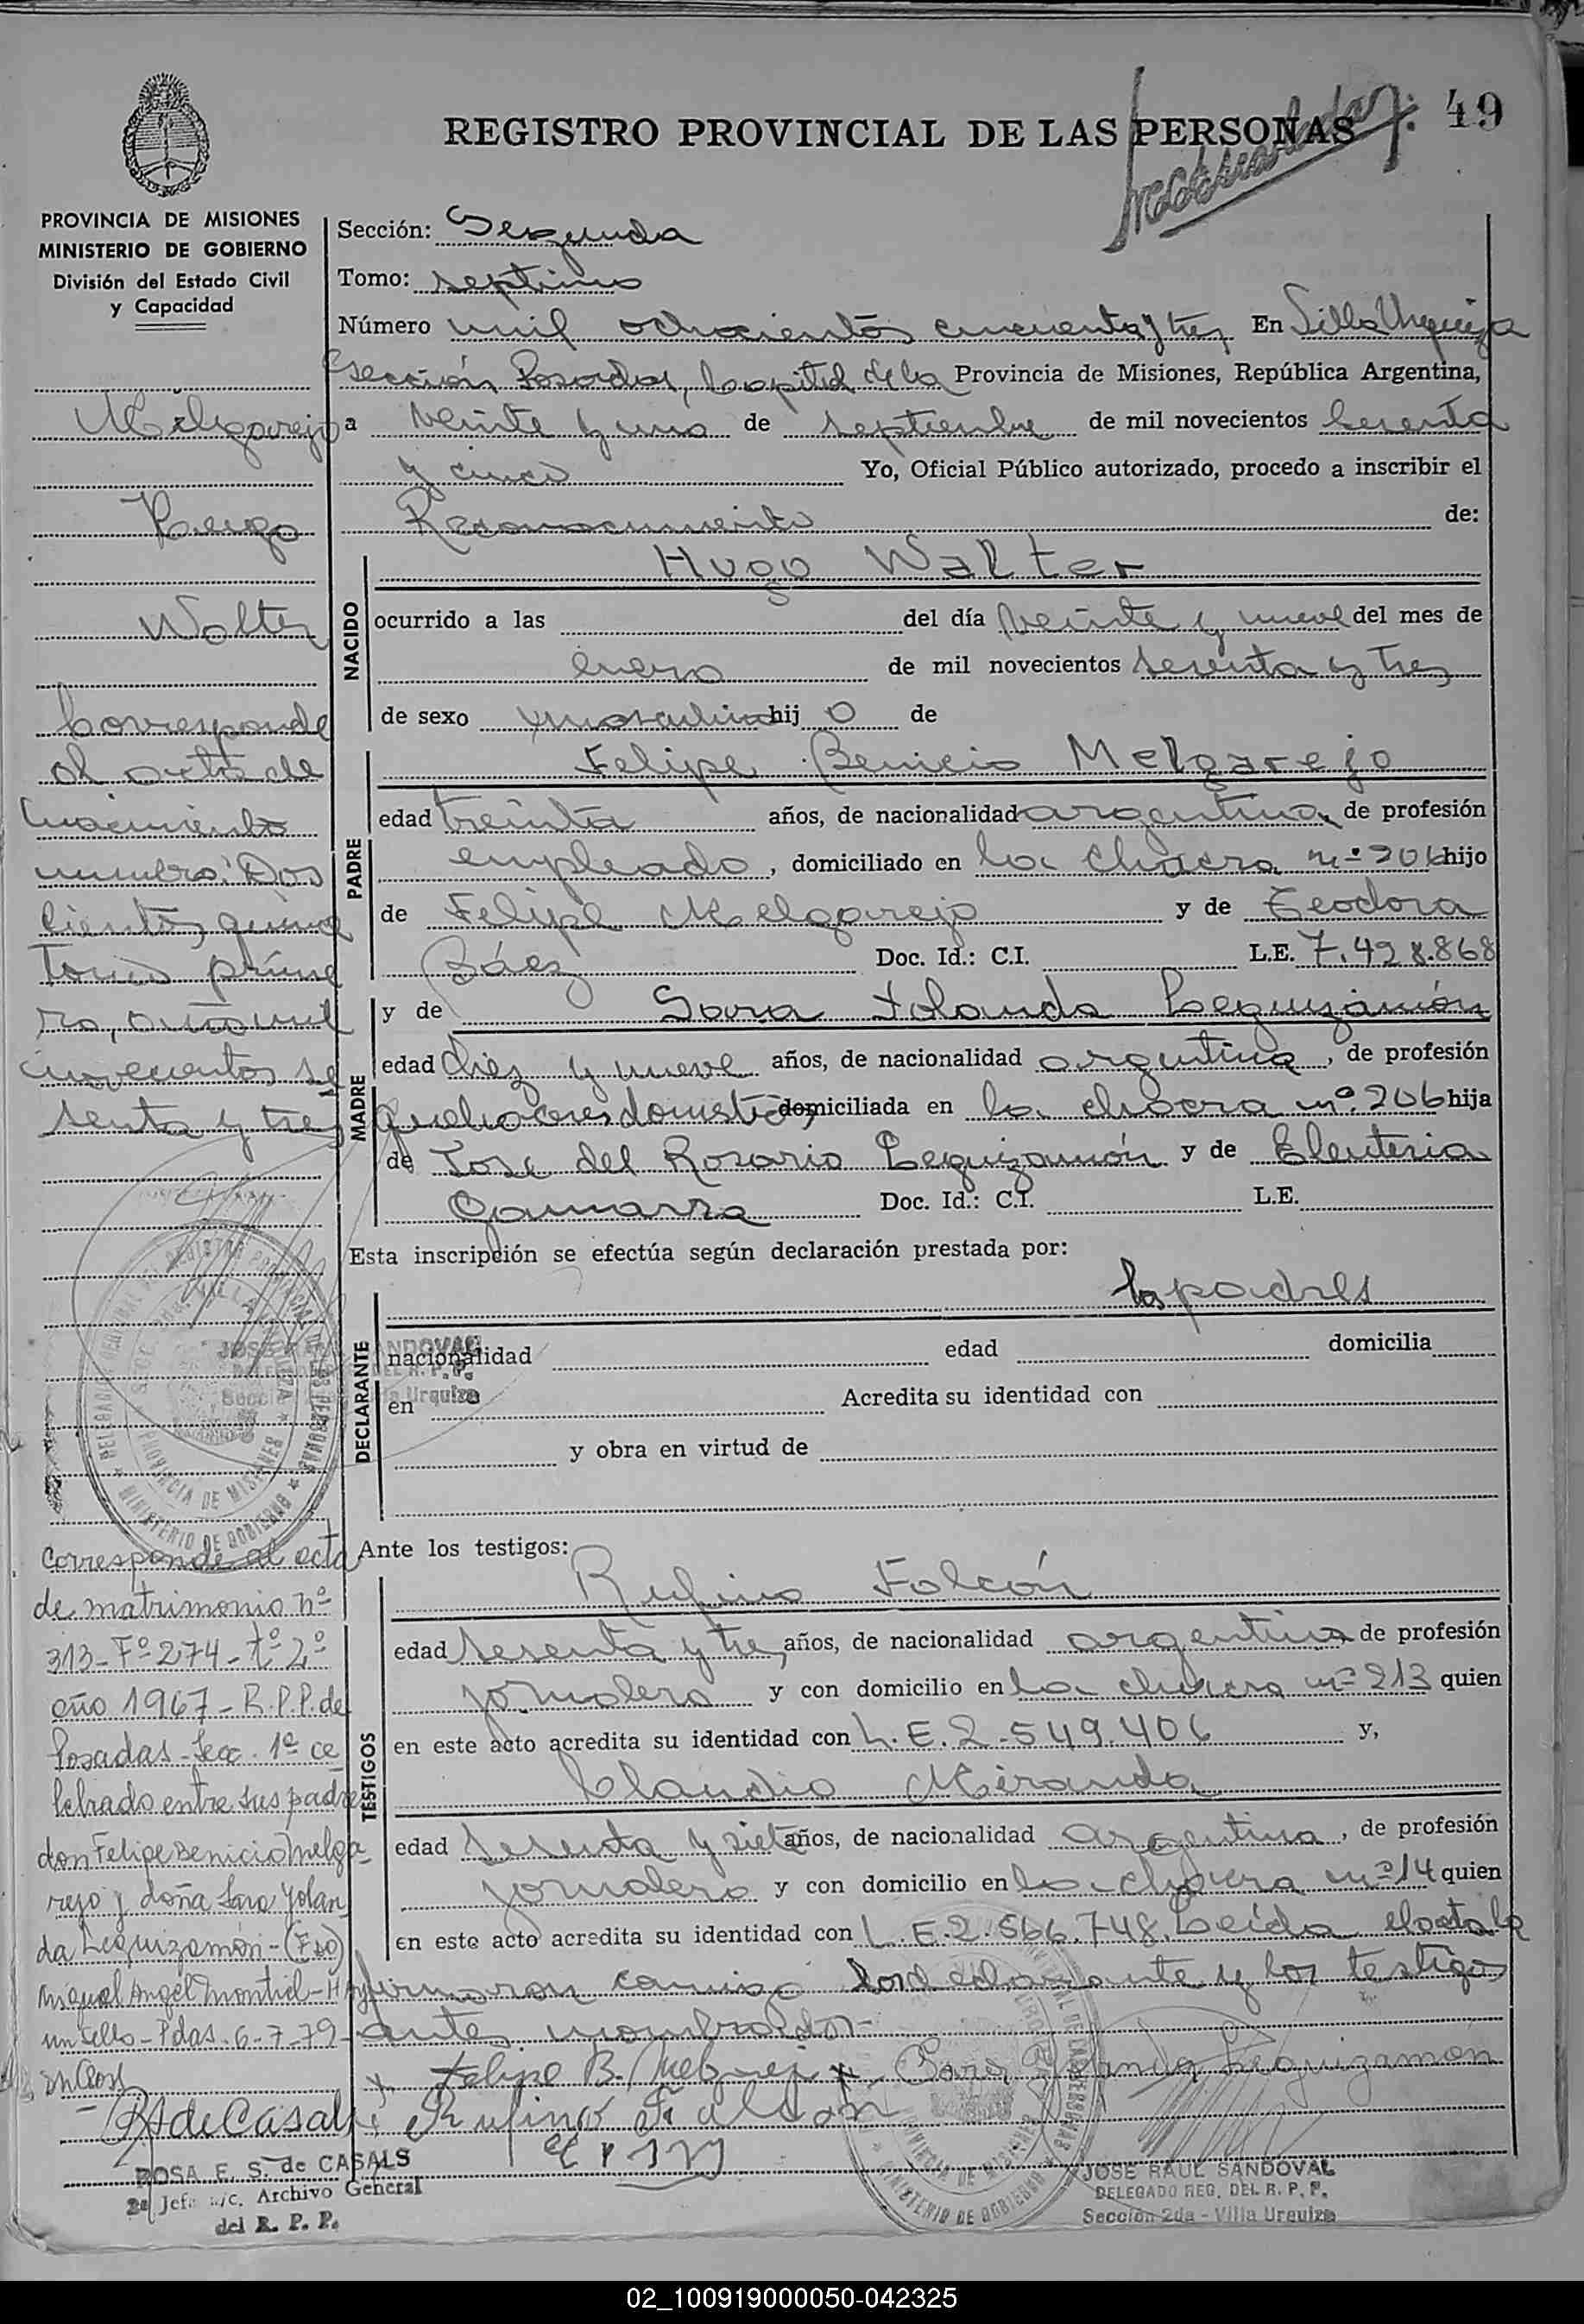 49
REGISTRO PROVINCIAL DE LAS PERSONAS
PROVINCIA DE MISIONES
MINISTERIO DE GOBIERNO
División del Estado Civil
y Capacidad
Melgarejo
Hugo
Walter
Corresponde
al acta de
nacimiento
numero: Dos
cientos quince
Tomo prime
ro, año mil
novecientos se
senta y tres
Corresponde al acta
de matrimonio nº
313-Fº274-tº2º
año 1967-R.P.P. de
Posadas-Secc. 1ª ce
lebrado entre sus padres
don Felipe Benicio Melga
rejo y doña Sara Yolan
da Leguizamón-(Fdo)
Miguel Angel Montiel-Hay
un sello-Pdas-6-7-79-
ROSA E. S. de CASALS
2ª Jefe a/c. Archivo General
del R. P. P.
Sección: Segunda
Tomo: septimo
Número mil ochocientos cincuenta y tres En Villa Urquiza
Sección Posadas, Capital de la Provincia de Misiones, República Argentina,
a veinte y uno de septiembre de mil novecientos sesenta
y cinco Yo, Oficial Público autorizado, procedo a inscribir el
Reconocimiento de:
NACIDO
Hugo Walter
ocurrido a las del día veinte y nueve del mes de
enero de mil novecientos sesenta y tres
de sexo masculino hij o de
PADRE
Felipe Benicio Melgarejo
edad treinta años, de nacionalidad argentina, de profesión
empleado, domiciliado en la chacra nº 206 hijo
de Felipe Melgarejo y de Teodora
Báez Doc. Id.: C.I. L.E. 7.428.868
MADRE
y de Sara Yolanda Leguizamón
edad diez y nueve años, de nacionalidad argentina, de profesión
quehaceres domésticos domiciliada en la chacra nº 206 hija
de José del Rosario Leguizamón y de Eleuteria
Gamarra Doc. Id.: C.I. L.E.
Esta inscripción se efectúa según declaración prestada por:
DECLARANTE
los padres
nacionalidad edad domicilia
en Acredita su identidad con
y obra en virtud de
Ante los testigos:
TESTIGOS
Rufino Falcón
edad sesenta y tres años, de nacionalidad argentina de profesión
jornalero y con domicilio en la chacra nº 213 quien
en este acto acredita su identidad con L.E. 2.549.406 y,
Claudio Miranda
edad sesenta y siete años, de nacionalidad argentina, de profesión
jornalero y con domicilio en la chacra nº 14 quien
en este acto acredita su identidad con L.E. 2.566.748. Leída el acta la
firmaron conmigo los declarante y los testigos
antes nombrados-
Felipe B. Melgarejo Sara Yolanda Leguizamón
RS de Casals Rufino Falcon
JOSE RAUL SANDOVAL
DELEGADO REG. DEL R. P. P.
Sección 2da - Villa Urquiza
02_100919000050-042325